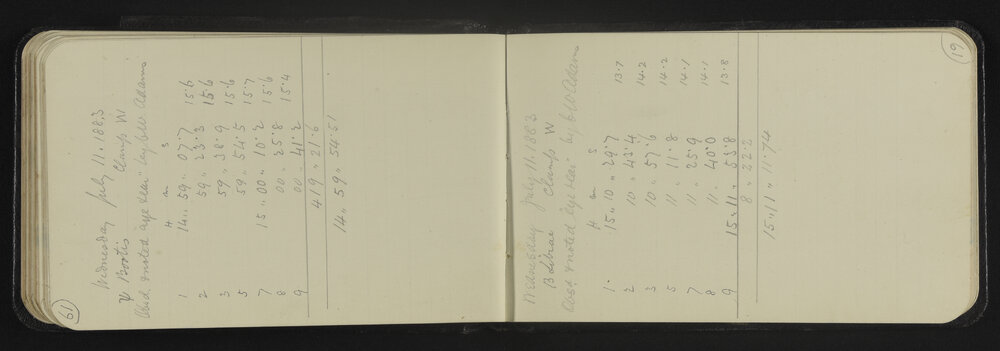 61
Wednesday July 11. 1883
ψ Bootis Clamp W
Obsd & noted "eye & ear" by C W Adams
H m s
1 14 " 59 " 07.7 15.6
2 59 " 23.3 15.6
3 59 " 38.9 15.6
5 59 " 54.5 15.7
7 15 " 00 " 10.2 15.6
8 00 " 25.8 15.4
9 00 " 41.2
419 " 21.6
14 " 59 " 54.51
19
Wednesday July 11. 1883
β Librae Clamp W
Obsd & noted "eye & ear" by C W Adams
H m s
1. 15 " 10 " 29.7 13.7
2 10 " 43.4 14.2
3 10 " 57.6 14.2
5 11 " 11.8 14.1
7 11 " 25.9 14.1
8 11 " 40.0 13.8
9 15 " 11 " 53.8
8 " 22.2
15 " 11 " 11.74